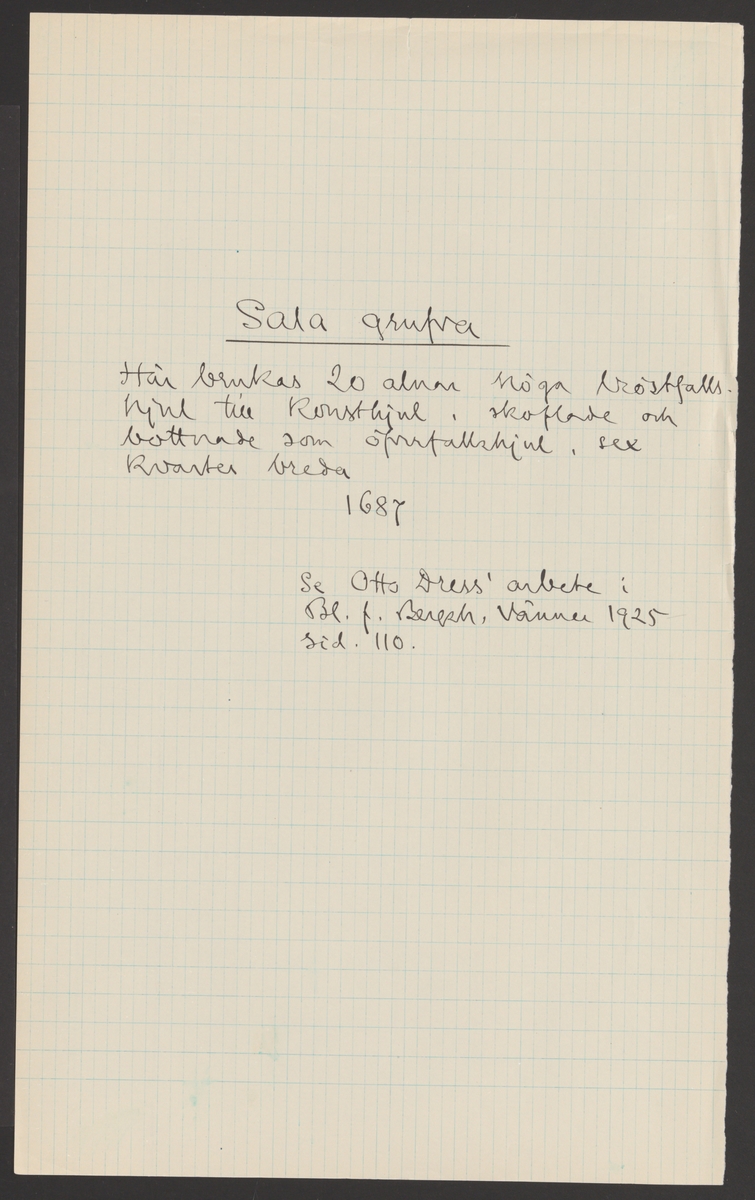 Sala grufva
Här brukas 20 alnar höga bröstfalls-
hjul till konsthjul, skoflade och
bottnade som öfverfallshjul, sex
kvarter breda
1687
Se Otto Dress' arbete i
Bl. f. Bergsh. Vänner 1925
sid. 110.